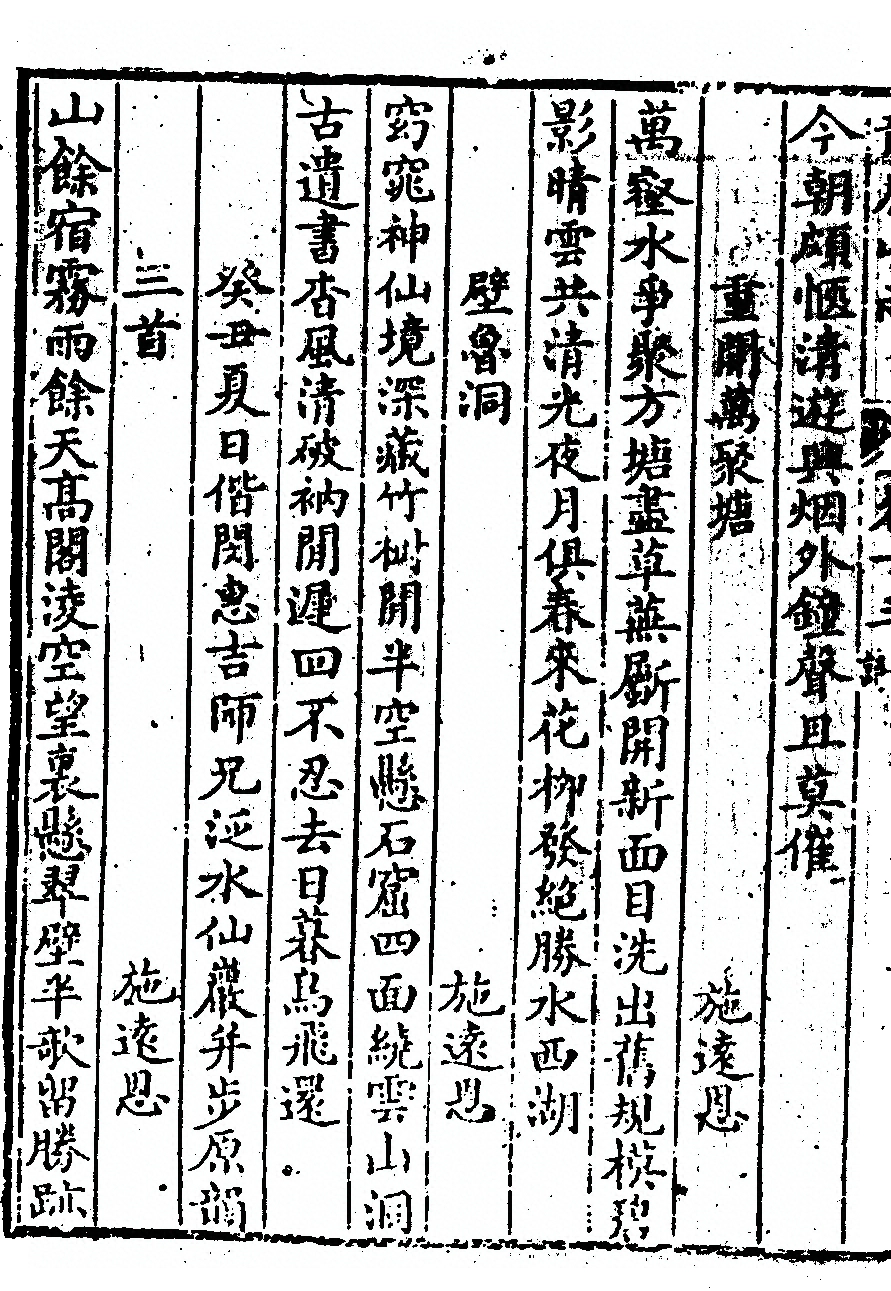 今朝頗愜清遊興烟外鐘聲且莫催
重開萬聚塘
施遠恩
萬壑水爭聚方塘盡草蕪斸開新面目洗出舊規模碧
影晴雲共清光夜月俱春來花柳發絕勝水西湖
壁魯洞
施遠恩
窈窕神仙境深藏竹樹開半空懸石窟四面繞雲山洞
古遺書杳風清破衲閒遲囬不忍去日暮鳥飛還
癸丑夏日偕閔惠吉師兄泛水仙巖并步原韻
三首
施遠恩
山餘宿霧雨餘天高閣淩空望裏懸翠壁半歌留勝跡